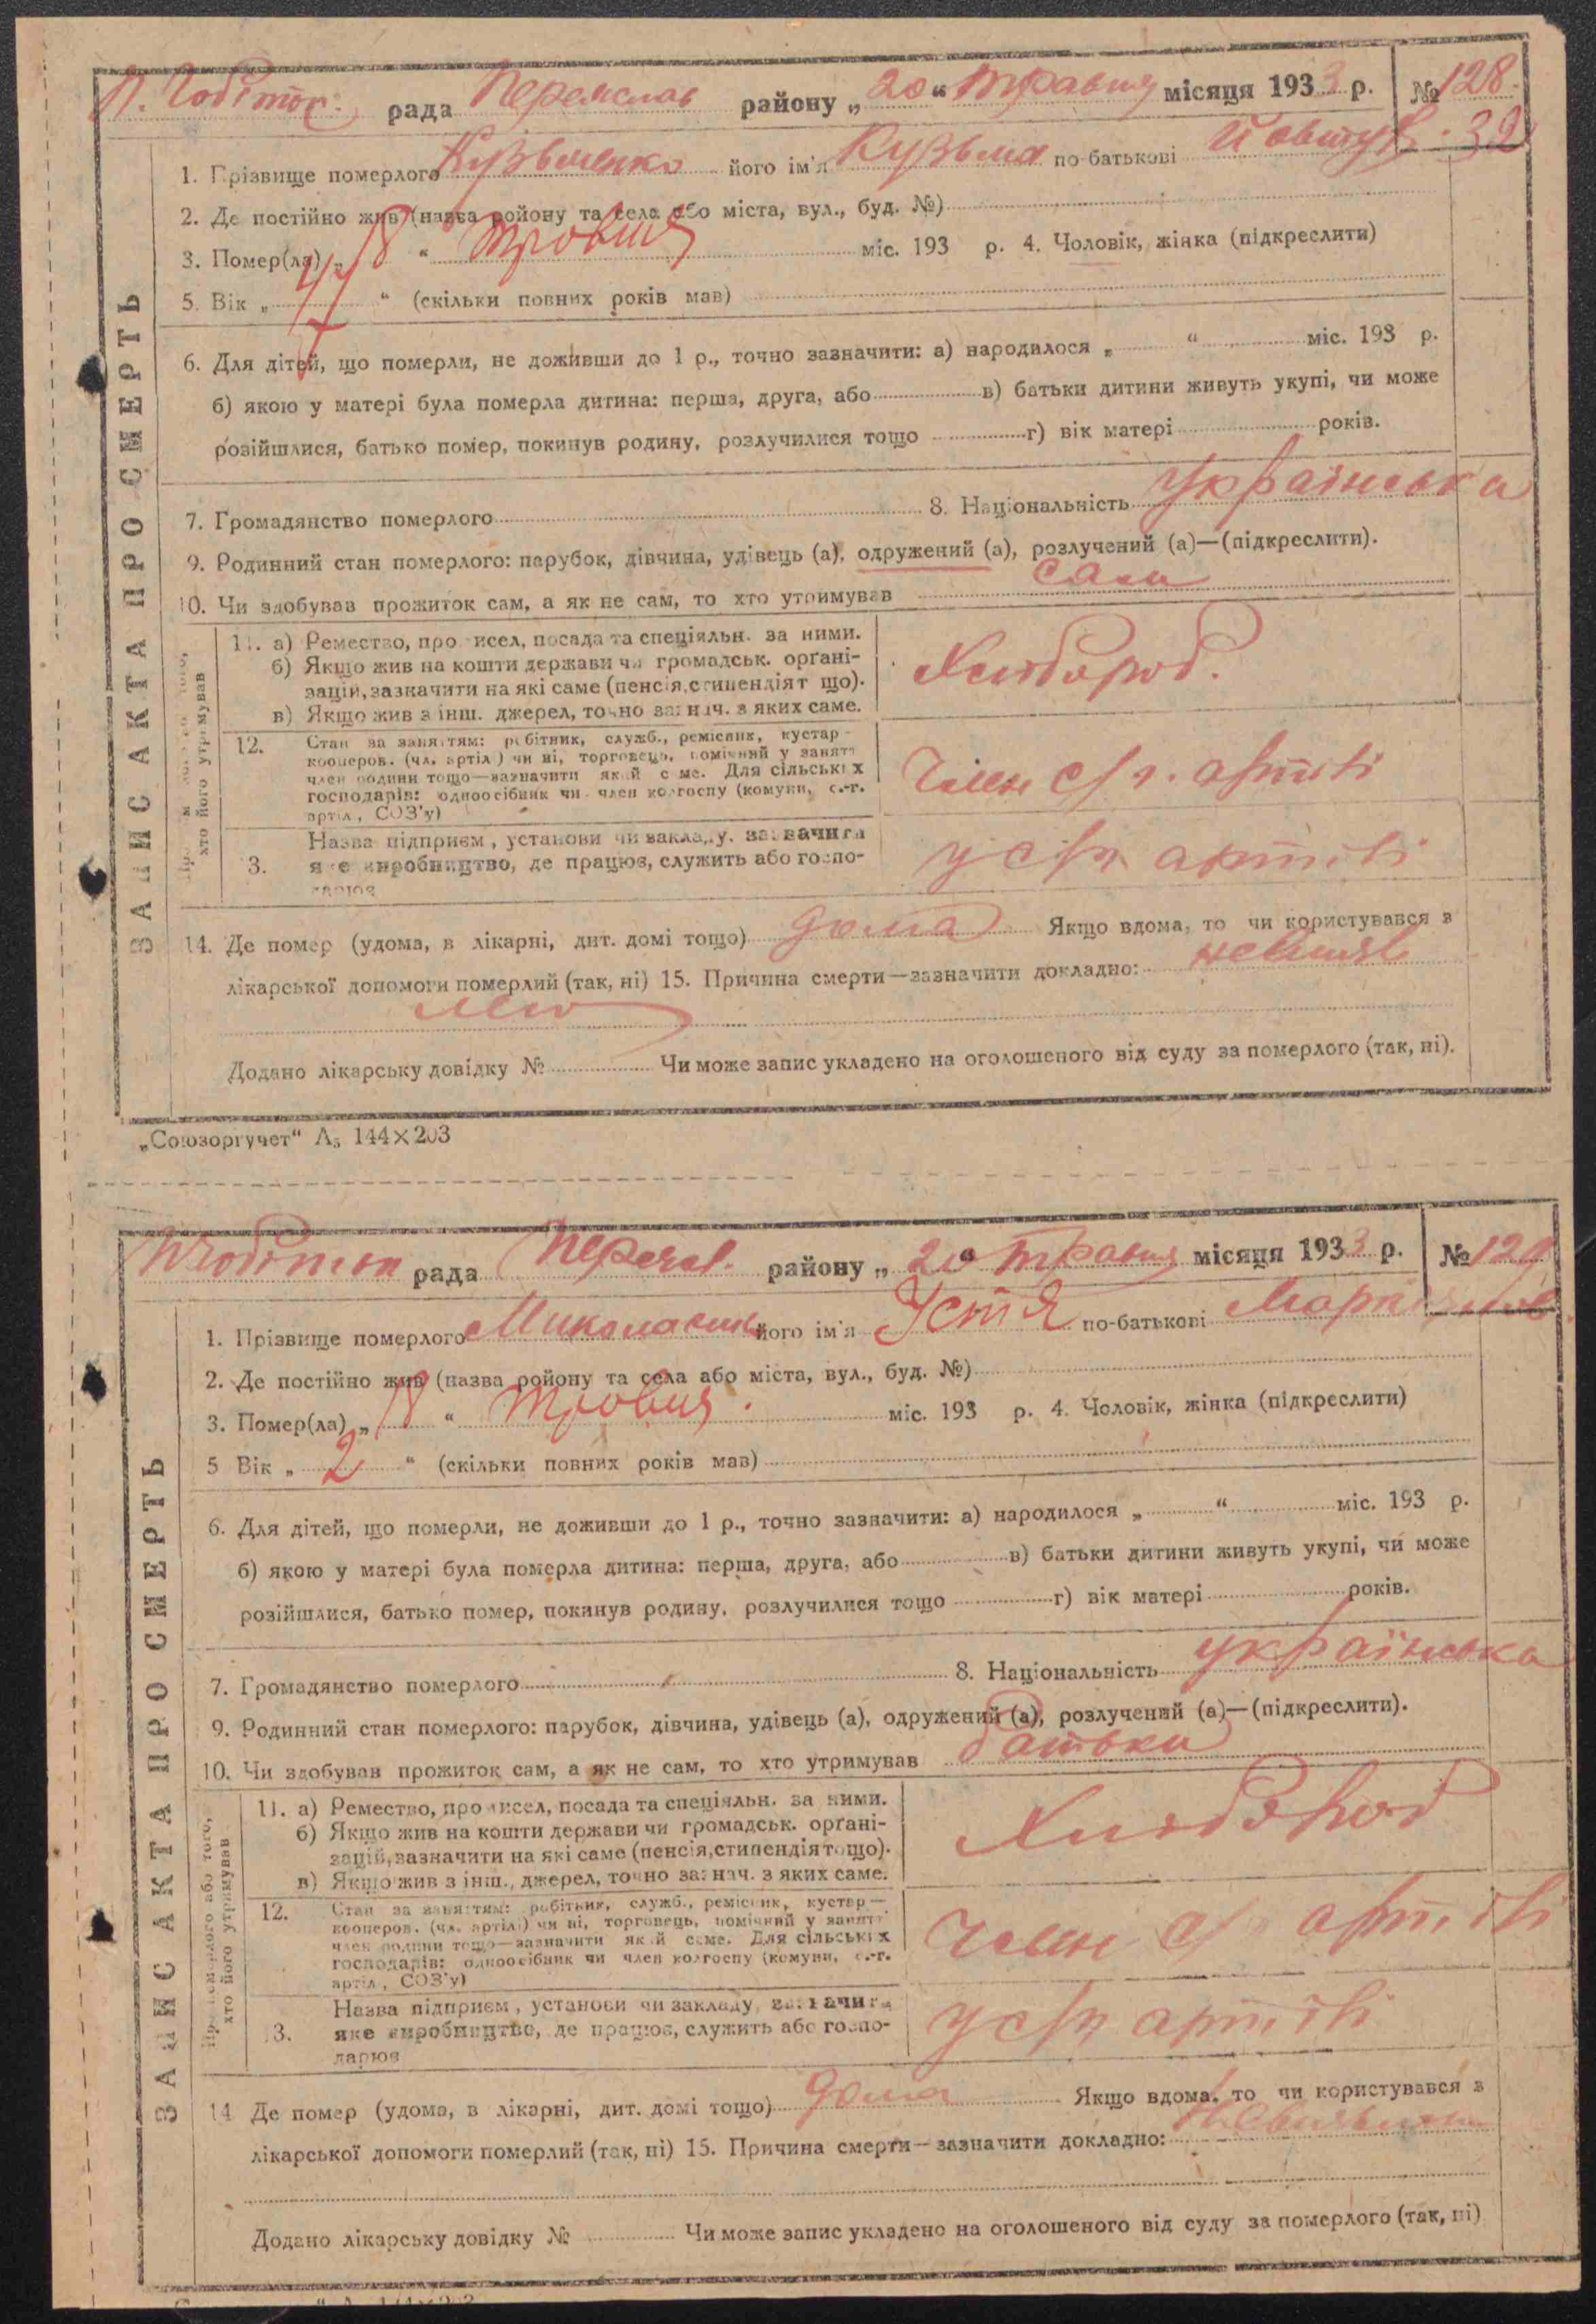 рада Переяслав району „20“ травня місяця 1933 р. № 128.
1. Прізвище померлого Кузьменко його ім'я Кузьма по-батькові
2. Де постійно жив (назва ройону та села або міста, вул., буд. №)
3. Помер(ла) „18“ травня міс. 193 р. 4. Чоловік, жінка (підкреслити)
5. Вік „ “ (скільки повних років мав)
6. Для дітей, що померли, не доживши до 1 р., точно зазначити: а) народилося „ “ міс. 193 р.
б) якою у матері була померла дитина: перша, друга, або в) батьки дитини живуть укупі, чи може
розійшлися, батько помер, покинув родину, розлучилися тощо г) вік матері років.
7. Громадянство померлого 8. Національність українська
9. Родинний стан померлого: парубок, дівчина, удівець (а), одружений (а), розлучений (а)—(підкреслити).
10. Чи здобував прожиток сам, а як не сам, то хто утримував сам
ЗАПИС АКТА ПРО СМЕРТЬ
хто його утримував
11. а) Ремество, промисел, посада та спеціяльн. за ними.
б) Якщо жив на кошти держави чи громадськ. орґані-
зацій, зазначити на які саме (пенсія, стипендія т що).
в) Якщо жив з інш. джерел, точно зазнач. з яких саме.
Хлібороб.
12. Стан за заняттям: робітник, служб., ремісник, кустар—
кооперов. (чл. артіл.) чи ні, торговець, помічний у занятт
член родини тощо—зазначити який саме. Для сільських
господарів: одноосібник чи член колгоспу (комуни, с.-г.
артіл, СОЗ'у)
Член с/г. артілі
13. Назва підприєм, установи чи закладу, зазначити
яке виробництво, де працює, служить або госпо-
дарює
у с/г артілі
14. Де помер (удома, в лікарні, дит. домі тощо) дома Якщо вдома, то чи користувався з
лікарської допомоги померлий (так, ні) 15. Причина смерти—зазначити докладно:
Додано лікарську довідку № Чи може запис укладено на оголошеного від суду за померлого (так, ні).
„Союзоргучет“ А₅ 144×203
рада Переясл. району „20“ травня місяця 1933 р. № 129
1. Прізвище померлого його ім'я Устя по-батькові
2. Де постійно жив (назва ройону та села або міста, вул., буд. №)
3. Помер(ла) „18“ травня. міс. 193 р. 4. Чоловік, жінка (підкреслити)
5 Вік „2“ (скільки повних років мав)
6. Для дітей, що померли, не доживши до 1 р., точно зазначити: а) народилося „ “ міс. 193 р.
б) якою у матері була померла дитина: перша, друга, або в) батьки дитини живуть укупі, чи може
розійшлися, батько помер, покинув родину, розлучилися тощо г) вік матері років.
7. Громадянство померлого 8. Національність українська
9. Родинний стан померлого: парубок, дівчина, удівець (а), одружений (а), розлучений (а)—(підкреслити).
10. Чи здобував прожиток сам, а як не сам, то хто утримував батьки
ЗАПИС АКТА ПРО СМЕРТЬ
Про померлого або того,
хто його утримував
11. а) Ремество, промисел, посада та спеціяльн. за ними.
б) Якщо жив на кошти держави чи громадськ. орґані-
зацій, зазначити на які саме (пенсія, стипендія тощо).
в) Якщо жив з інш. джерел, точно зазнач. з яких саме.
Хлібороб
12. Стан за заняттям: робітник, служб., ремісник, кустар—
кооперов. (чл. артіл.) чи ні, торговець, помічний у занятт
член родини тощо—зазначити який саме. Для сільських
господарів: одноосібник чи член колгоспу (комуни, с.-г.
артіл, СОЗ'у)
Член с/г артілі
13. Назва підприєм, установи чи закладу, зазначити
яке виробництво, де працює, служить або госпо-
дарює
у с/г артілі
14 Де помер (удома, в лікарні, дит. домі тощо) дома Якщо вдома, то чи користувався з
лікарської допомоги померлий (так, ні) 15. Причина смерти—зазначити докладно:
Додано лікарську довідку № Чи може запис укладено на оголошеного від суду за померлого (так, ні)